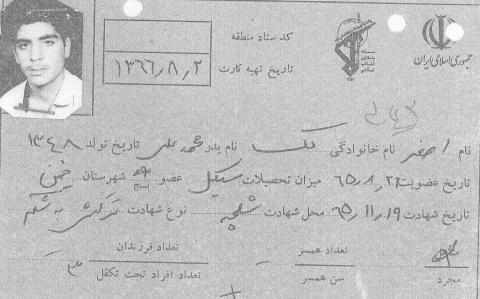 جمهوری اسلامی ایران
کد ستاد منطقه
تاریخ تهیه کارت ۱۳۶۶٫۸٫۲
نام اصغر نام خانوادگی نام پدر محمدعلی تاریخ تولد ۱۳۴۸
تاریخ عضویت ۶۵٫۸٫۲۱ میزان تحصیلات سیکل عضو بسیج شهرستان خمین
تاریخ شهادت ۶۵٫۱۱٫۱۹ محل شهادت شلمچه نوع شهادت ترکش به شکم
متاهل تعداد همسر تعداد فرزندان
مجرد سن همسر تعداد افراد تحت تکفل ۳